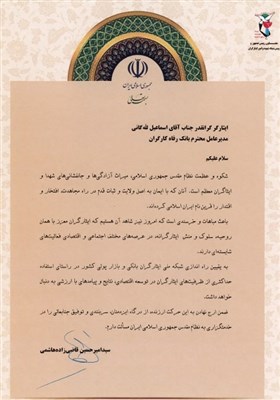 جمهوری اسلامی ایران
ایثارگر گرانقدر جناب آقای اسماعیل لله‌گانی
مدیرعامل محترم بانک رفاه کارگران
سلام علیکم
شکوه و عظمت نظام مقدس جمهوری اسلامی، میراث آزادگی‌ها و جانفشانی‌های شهدا و
ایثارگران معظم است. آنان که با ایمان به اصل ولایت و ثبات قدم در راه مجاهدت، افتخار و
اقتدار را قرین نام ایران اسلامی کرده‌اند.
باعث مباهات و خرسندی است که امروز نیز شاهد آن هستیم که ایثارگران معزز با همان
روحیه، سلوک و منش ایثارگرانه، در عرصه‌های مختلف اجتماعی و اقتصادی فعالیت‌های
شایسته‌ای دارند.
به یقین راه اندازی شبکه ملی ایثارگران بانکی و بازار پولی کشور در راستای استفاده
حداکثری از ظرفیت‌های ایثارگران در توسعه اقتصادی، نتایج و پیامدهای با ارزشی به دنبال
خواهد داشت.
ضمن ارج نهادن به این حرکت ارزنده، از درگاه ایزدمنان، سربلندی و توفیق جنابعالی را در
خدمتگزاری به نظام مقدس جمهوری اسلامی ایران مسألت دارم.
سیدامیرحسین قاضی‌زاده‌هاشمی